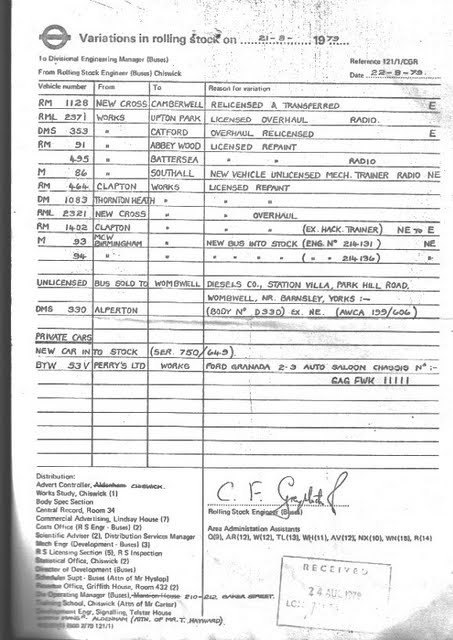 Variations in rolling stock on 21-8- 1979
To Divisional Engineering Manager (Buses)
Reference 121/1/CGR
From Rolling Stock Engineer (Buses) Chiswick
Date 22-8-79.
Vehicle number From To Reason for variation
RM 1128 NEW CROSS CAMBERWELL RELICENSED & TRANSFERRED E
RML 2371 WORKS UPTON PARK LICENSED OVERHAUL RADIO.
DMS 353 " CATFORD OVERHAUL RELICENSED E
RM 91 " ABBEY WOOD LICENSED REPAINT
495 " BATTERSEA " " RADIO
M 86 " SOUTHALL NEW VEHICLE UNLICENSED MECH. TRAINER RADIO NE
RM 464 CLAPTON WORKS LICENSED REPAINT
DM 1083 THORNTON HEATH " " "
RML 2321 NEW CROSS " " OVERHAUL
RM 1402 CLAPTON " " " (EX. HACK. TRAINER) NE TO E
M 93 MCW BIRMINGHAM " NEW BUS INTO STOCK (ENG. Nº 214131) NE
94 " " " " " " (" " 214136) "
UNLICENSED BUS SOLD TO WOMBWELL DIESELS CO., STATION VILLA, PARK HILL ROAD,
WOMBWELL, NR. BARNSLEY, YORKS :-
DMS 330 ALPERTON (BODY Nº D330) EX. NE. (AWCA 199/606)
PRIVATE CARS
NEW CAR INTO STOCK (SER. 750/649).
BYW 53V PERRY'S LTD WORKS FORD GRANADA 2.3 AUTO SALOON CHASSIS Nº :-
GAG FWK 11111
Distribution:
Advert Controller, Aldenham CHISWICK.
Works Study, Chiswick (1)
Body Spec Section
Central Record, Room 34
Commercial Advertising, Lindsay House (7)
Costs Office (R S Engr - Buses) (2)
Scientific Adviser (2), Distribution Services Manager
Mech Engr (Development - Buses) (3)
R S Licensing Section (5), R S Inspection
Statistical Office, Chiswick (2)
Director of Development (Buses)
Scheduler Supt - Buses (Attn of Mr Hyslop)
Office, Griffith House, Room 432 (2)
Operating Manager (Buses) 210-212,
Training School, Chiswick (Attn of Mr Carter)
Development Engr, Signalling, Telstar House
ALDENHAM (ATTN. OF MR. T. HAYWARD).
C. F.
Rolling Stock Engineer (Buses)
Area Administation Assistants
Q(9), AR(12), W(12), TL(13), WH(11), AV(12), NX(10), WN(18), R(14)
RECEIVED
24 AUG 1979